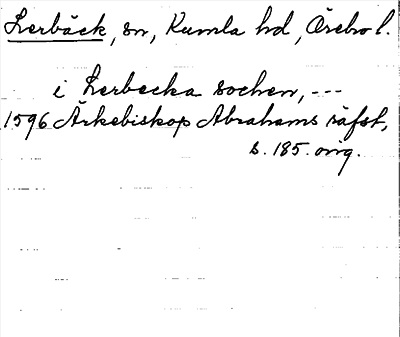 Lerbäck, sn, Kumla hd, Örebro l.
i Lerbecka sochen, ---
1596 Ärkebiskop Abrahams räfst,
s. 185. orig.